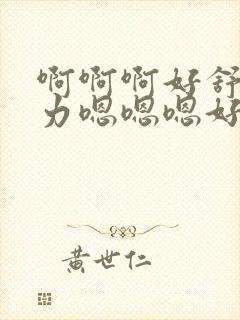 啊啊啊好舒
力嗯嗯嗯好
黄世仁